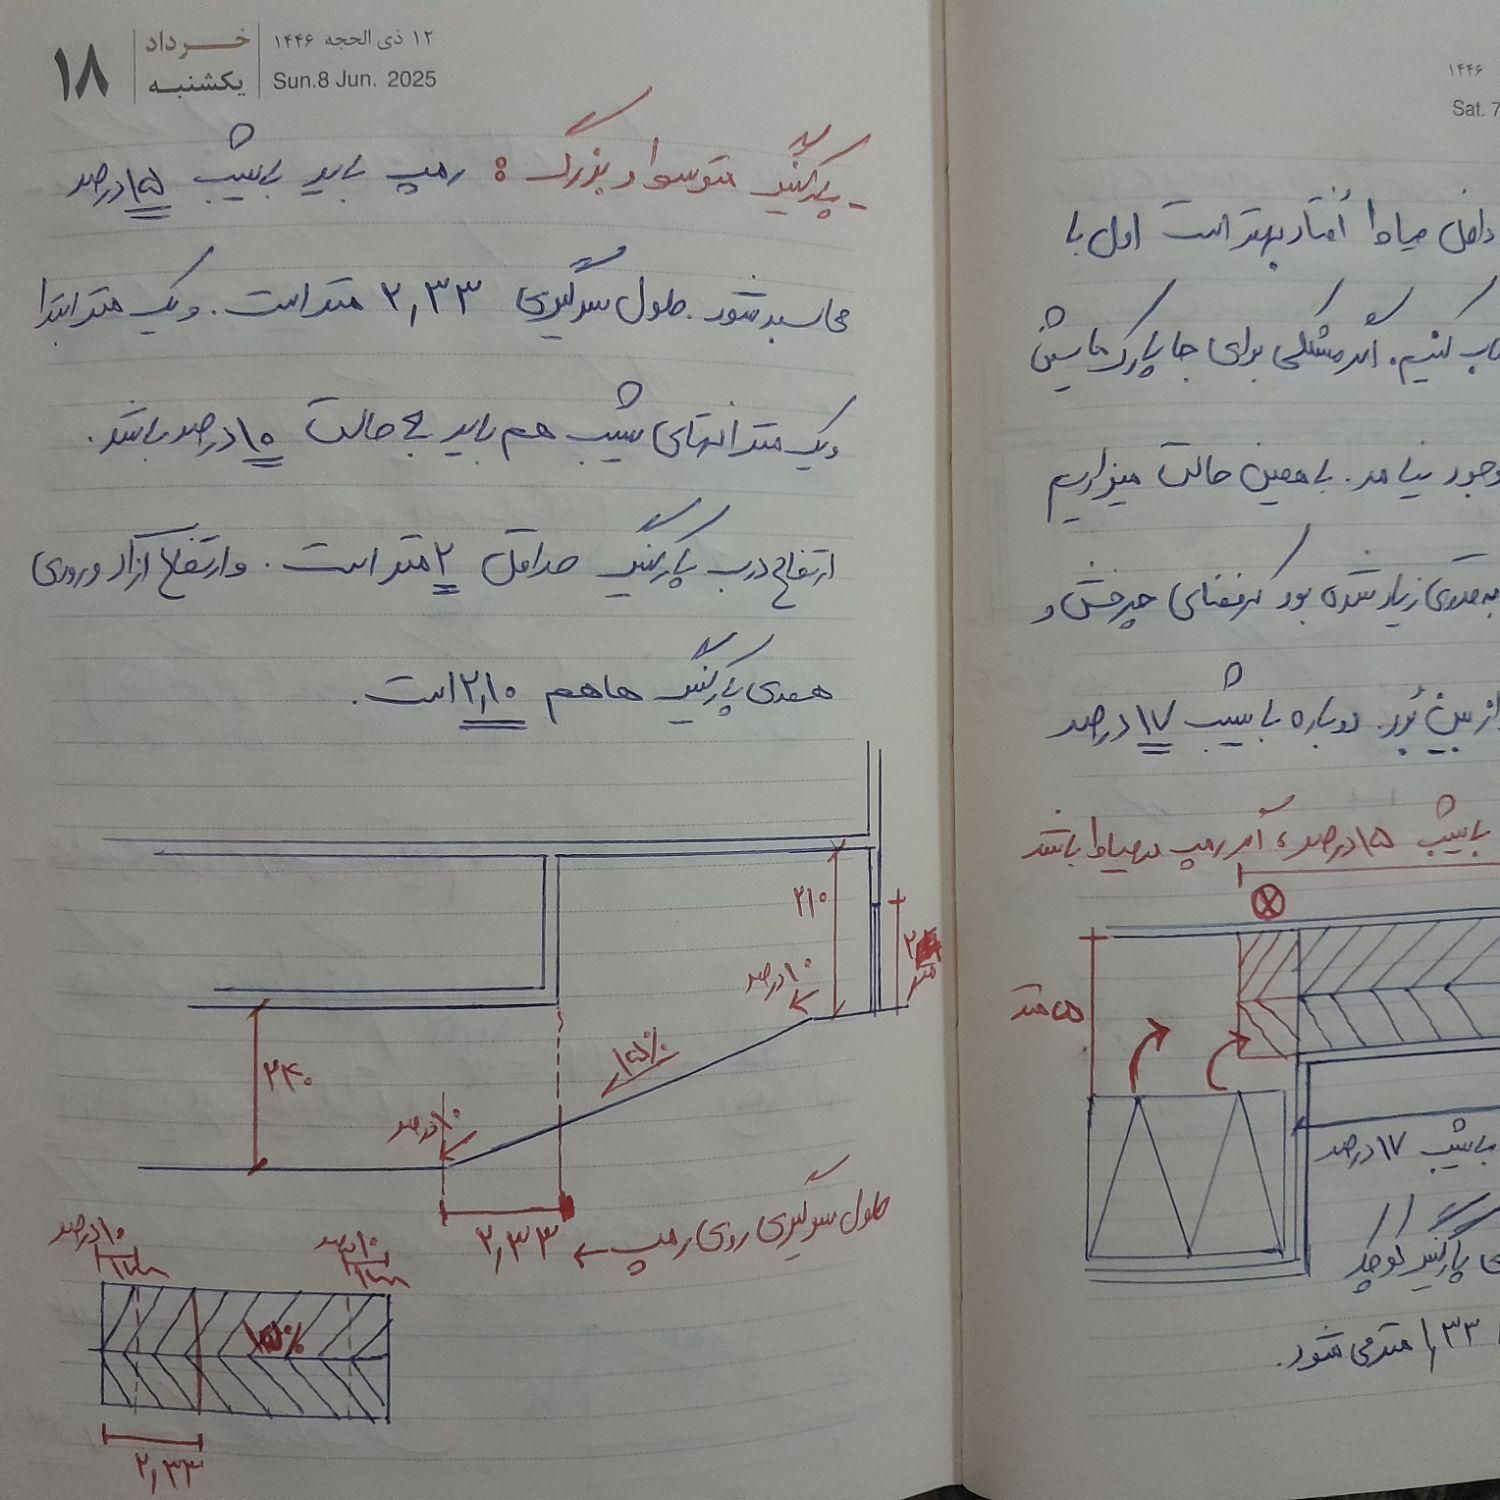 ۱۸
خرداد
یکشنبه
۱۲ ذی الحجه ۱۴۴۶
Sun.8 Jun. 2025
- پارکینگ متوسط و بزرگ : رمپ باید با شیب ۱۵ درصد
محاسبه شود. طول سرگیری ۲,۳۳ متر است. و یک متر ابتدا
و یک متر انتهای شیب هم باید به حالت ۱۰ درصد باشد.
ارتفاع درب پارکینگ حداقل ۲ متر است. و ارتفاع آزاد ورودی
همه‌ی پارکینگ ها هم ۲,۱۰ است.
۲۱۰
۲
متر
۱۰ درصد
۱۵٪
۲۴۰
۱۰ درصد
۲,۳۳ ← طول سرگیری روی رمپ
۱۰ درصد
۱ متر
۱۰ درصد
۱ متر
۱۵٪
۲,۳۳
۱۴۴۶
Sat. 7
داخل حیاط افتاد بهتر است اول با
کنیم. اگر مشکلی برای جا پارک ماشین
وجود نیامد. با همین حالت میزاریم
به حدی زیاد شده بود که فضای چرخش و
از بین بُرد. دوباره با شیب ۱۷ درصد
با شیب ۱۵ درصد، اگر رمپ در حیاط باشد
۵ متر
با شیب ۱۷ درصد
پارکینگ کوچک
۱,۳۳ متر می شود.